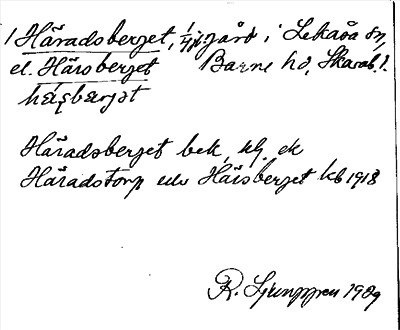 1 Häradsberget, 1/4 gård i Lekåsa sn,
el. Härsberget Barne hd, Skarab. l.
hæsbærjət
Häradsberget bek. ek
Häradstorp Härsberget kb 1918
R. Ljunggren 1909